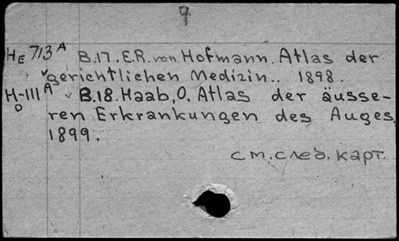 9
HE 713 A B.17. E.R. von Hofmann. Atlas der
gerichtlichen Medizin.. 1898.
H-III A B.18. Haab, O, Atlas der äusse-
D
ren Erkrankungen des Auges
1899.
см. след. карт.